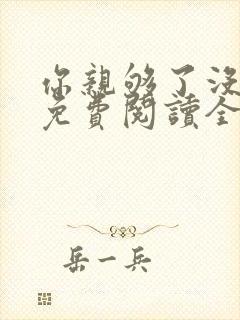 你親够了沒
免費閱讀全
岳一兵